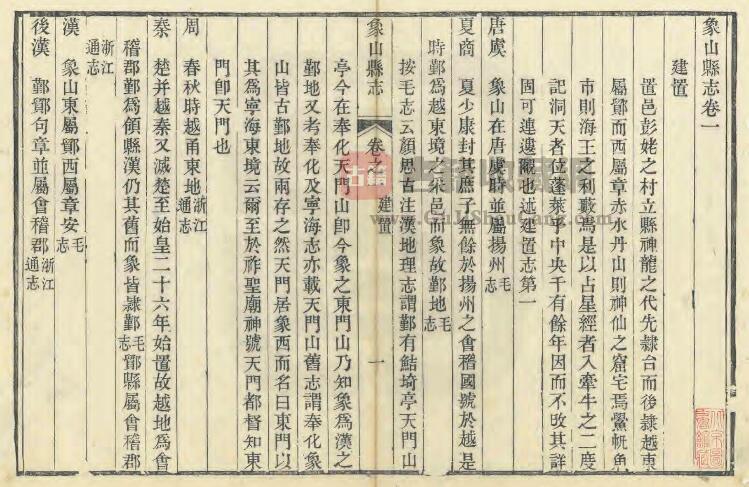 象山縣志卷一
建置
置邑彭姥之村立縣神龍之代先隸台而後隸越東
屬鄮而西屬章赤水丹山則神仙之窟宅焉鱟帆魚
市則海王之利藪焉是以占星經者入牽牛之二度
記洞天者位蓬萊乎中央千有餘年因而不改其詳
固可連遺覼也述建置志第一
唐虞 象山在唐虞時並屬揚州毛志
夏商 夏少康封其庶子無餘於揚州之會稽國號於越是
時鄞為越東境之采邑而象故鄞地毛志
按毛志云顏思古注漢地理志謂鄞有鮚埼亭天門山
象山縣志 卷之一 建置 一
亭今在奉化天門山卽今象之東門山乃知象為漢之
鄞地又考奉化及寧海志亦載天門山舊志謂奉化象
山皆古鄞地故兩存之然天門居象西而名曰東門以
其為寧海東境云爾至於祚聖廟神號天門都督知東
門卽天門也
周 春秋時越甬東地浙江通志
秦 楚并越秦又滅楚至始皇二十六年始置故越地為會
稽郡鄞為領縣漢仍其舊而象皆隸鄞毛志鄮縣屬會稽郡
浙江通志
漢 象山東屬鄮西屬章安毛志
後漢 鄞鄮句章並屬會稽郡浙江通志
古籍收藏網
www.GuJiShouCang.com